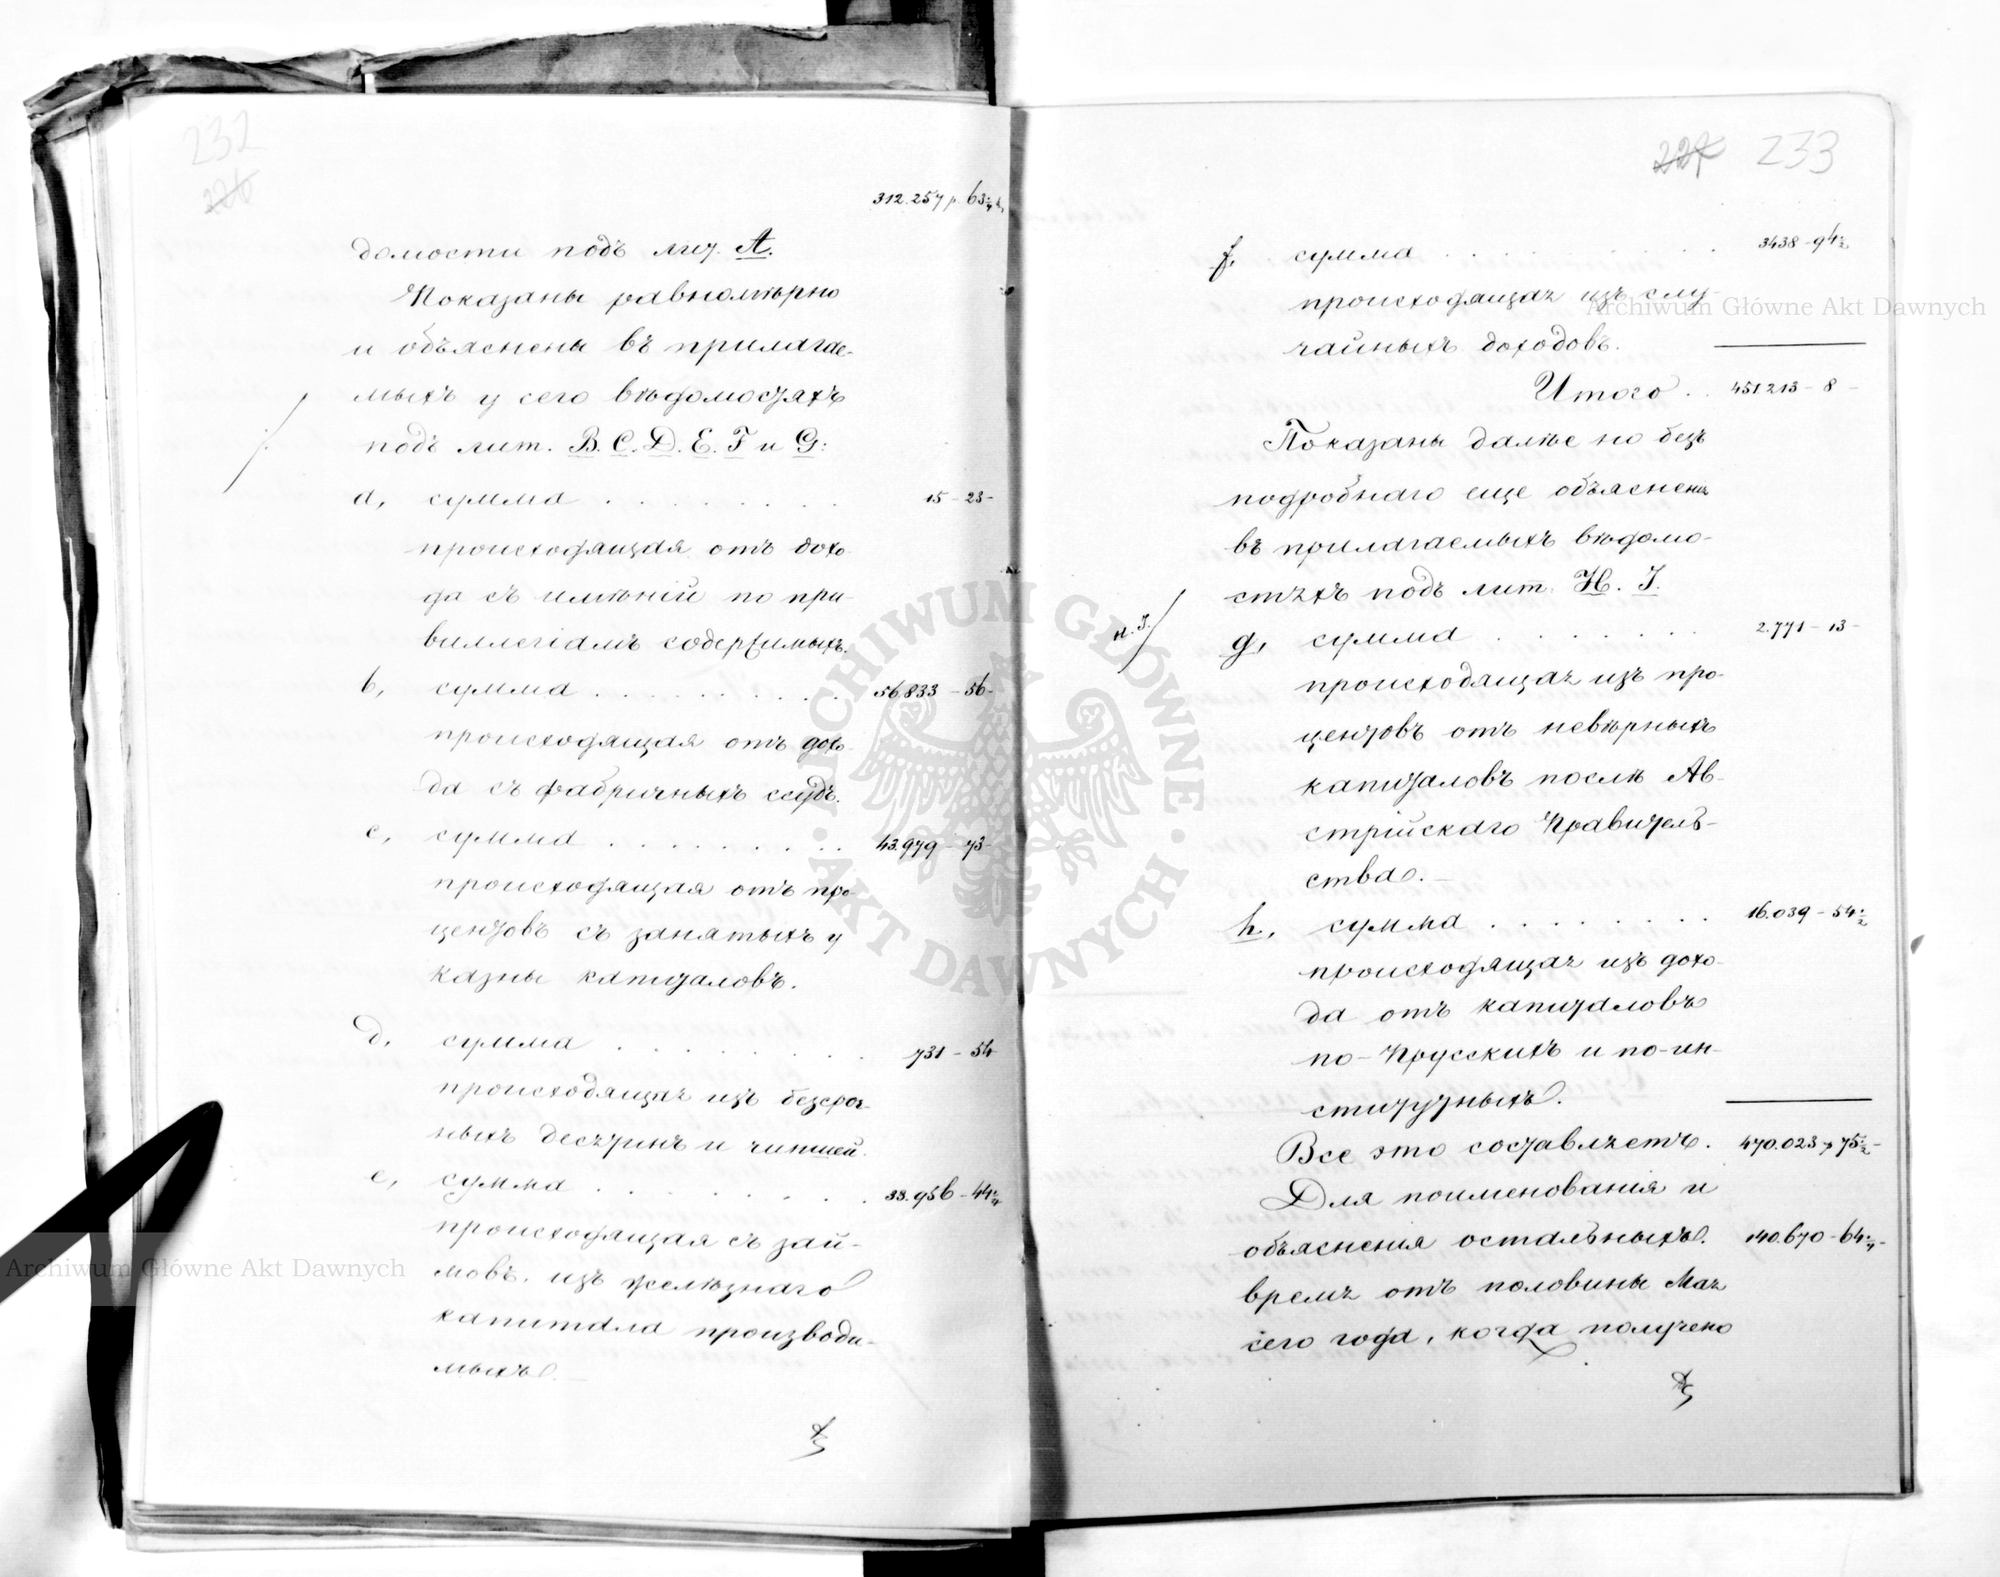 232
226
312.257 р. 63 3/4 к.
домости подъ лит. А.
Показаны равномѣрно
и объяснены въ прилагае-
мыхъ у сего вѣдомостяхъ
подъ лит. B. C. D. E. F и G:
a, сумма . . . . . . . . 15 - 23 -
происходящая отъ дохо-
да съ имѣній по при-
виллегіямъ содержимыхъ.
b, сумма . . . . . . . . 56.833 - 56 -
происходящая отъ дохо-
да съ фабричныхъ ссудъ.
c, сумма . . . . . . . . 43.979 - 73 -
происходящая отъ про-
центовъ съ занятыхъ у
казны капиталовъ.
d, сумма . . . . . . . . 731 - 54
происходящая изъ безсроч-
ныхъ десятинъ и чиншей.
e, сумма . . . . . . . . 33.956 - 44
происходящая съ зай-
мовъ, изъ желѣзнаго
капитала производи-
мыхъ. -
227 233
f, сумма . . . . . . . 3438 - 94 1/2
происходящая изъ слу-
чайныхъ доходовъ.
Итого . . 451213 - 8 -
Показаны далѣе но безъ
подробнаго еще объясненія
въ прилагаемыхъ вѣдомо-
стяхъ подъ лит. H. I.
H. I.
g, сумма . . . . . . . 2.771 - 13 -
происходящая изъ про-
центовъ отъ невѣрныхъ
капиталовъ послѣ Ав-
стрійскаго Правитель-
ства. -
h, сумма . . . . . . . 16.039 - 54 1/2
происходящая изъ дохо-
да отъ капиталовъ
по-Прусскихъ и по-ин-
ститутныхъ.
Все это составляетъ. 470.023 р 75 1/2 -
Для поименованія и
объясненія остальныхъ. 140.670 - 64 1/4 -
время отъ половины Мая
сего года, когда получено
Archiwum Główne Akt Dawnych
Archiwum Główne Akt Dawnych
ARCHIWUM GŁÓWNE · AKT DAWNYCH ·